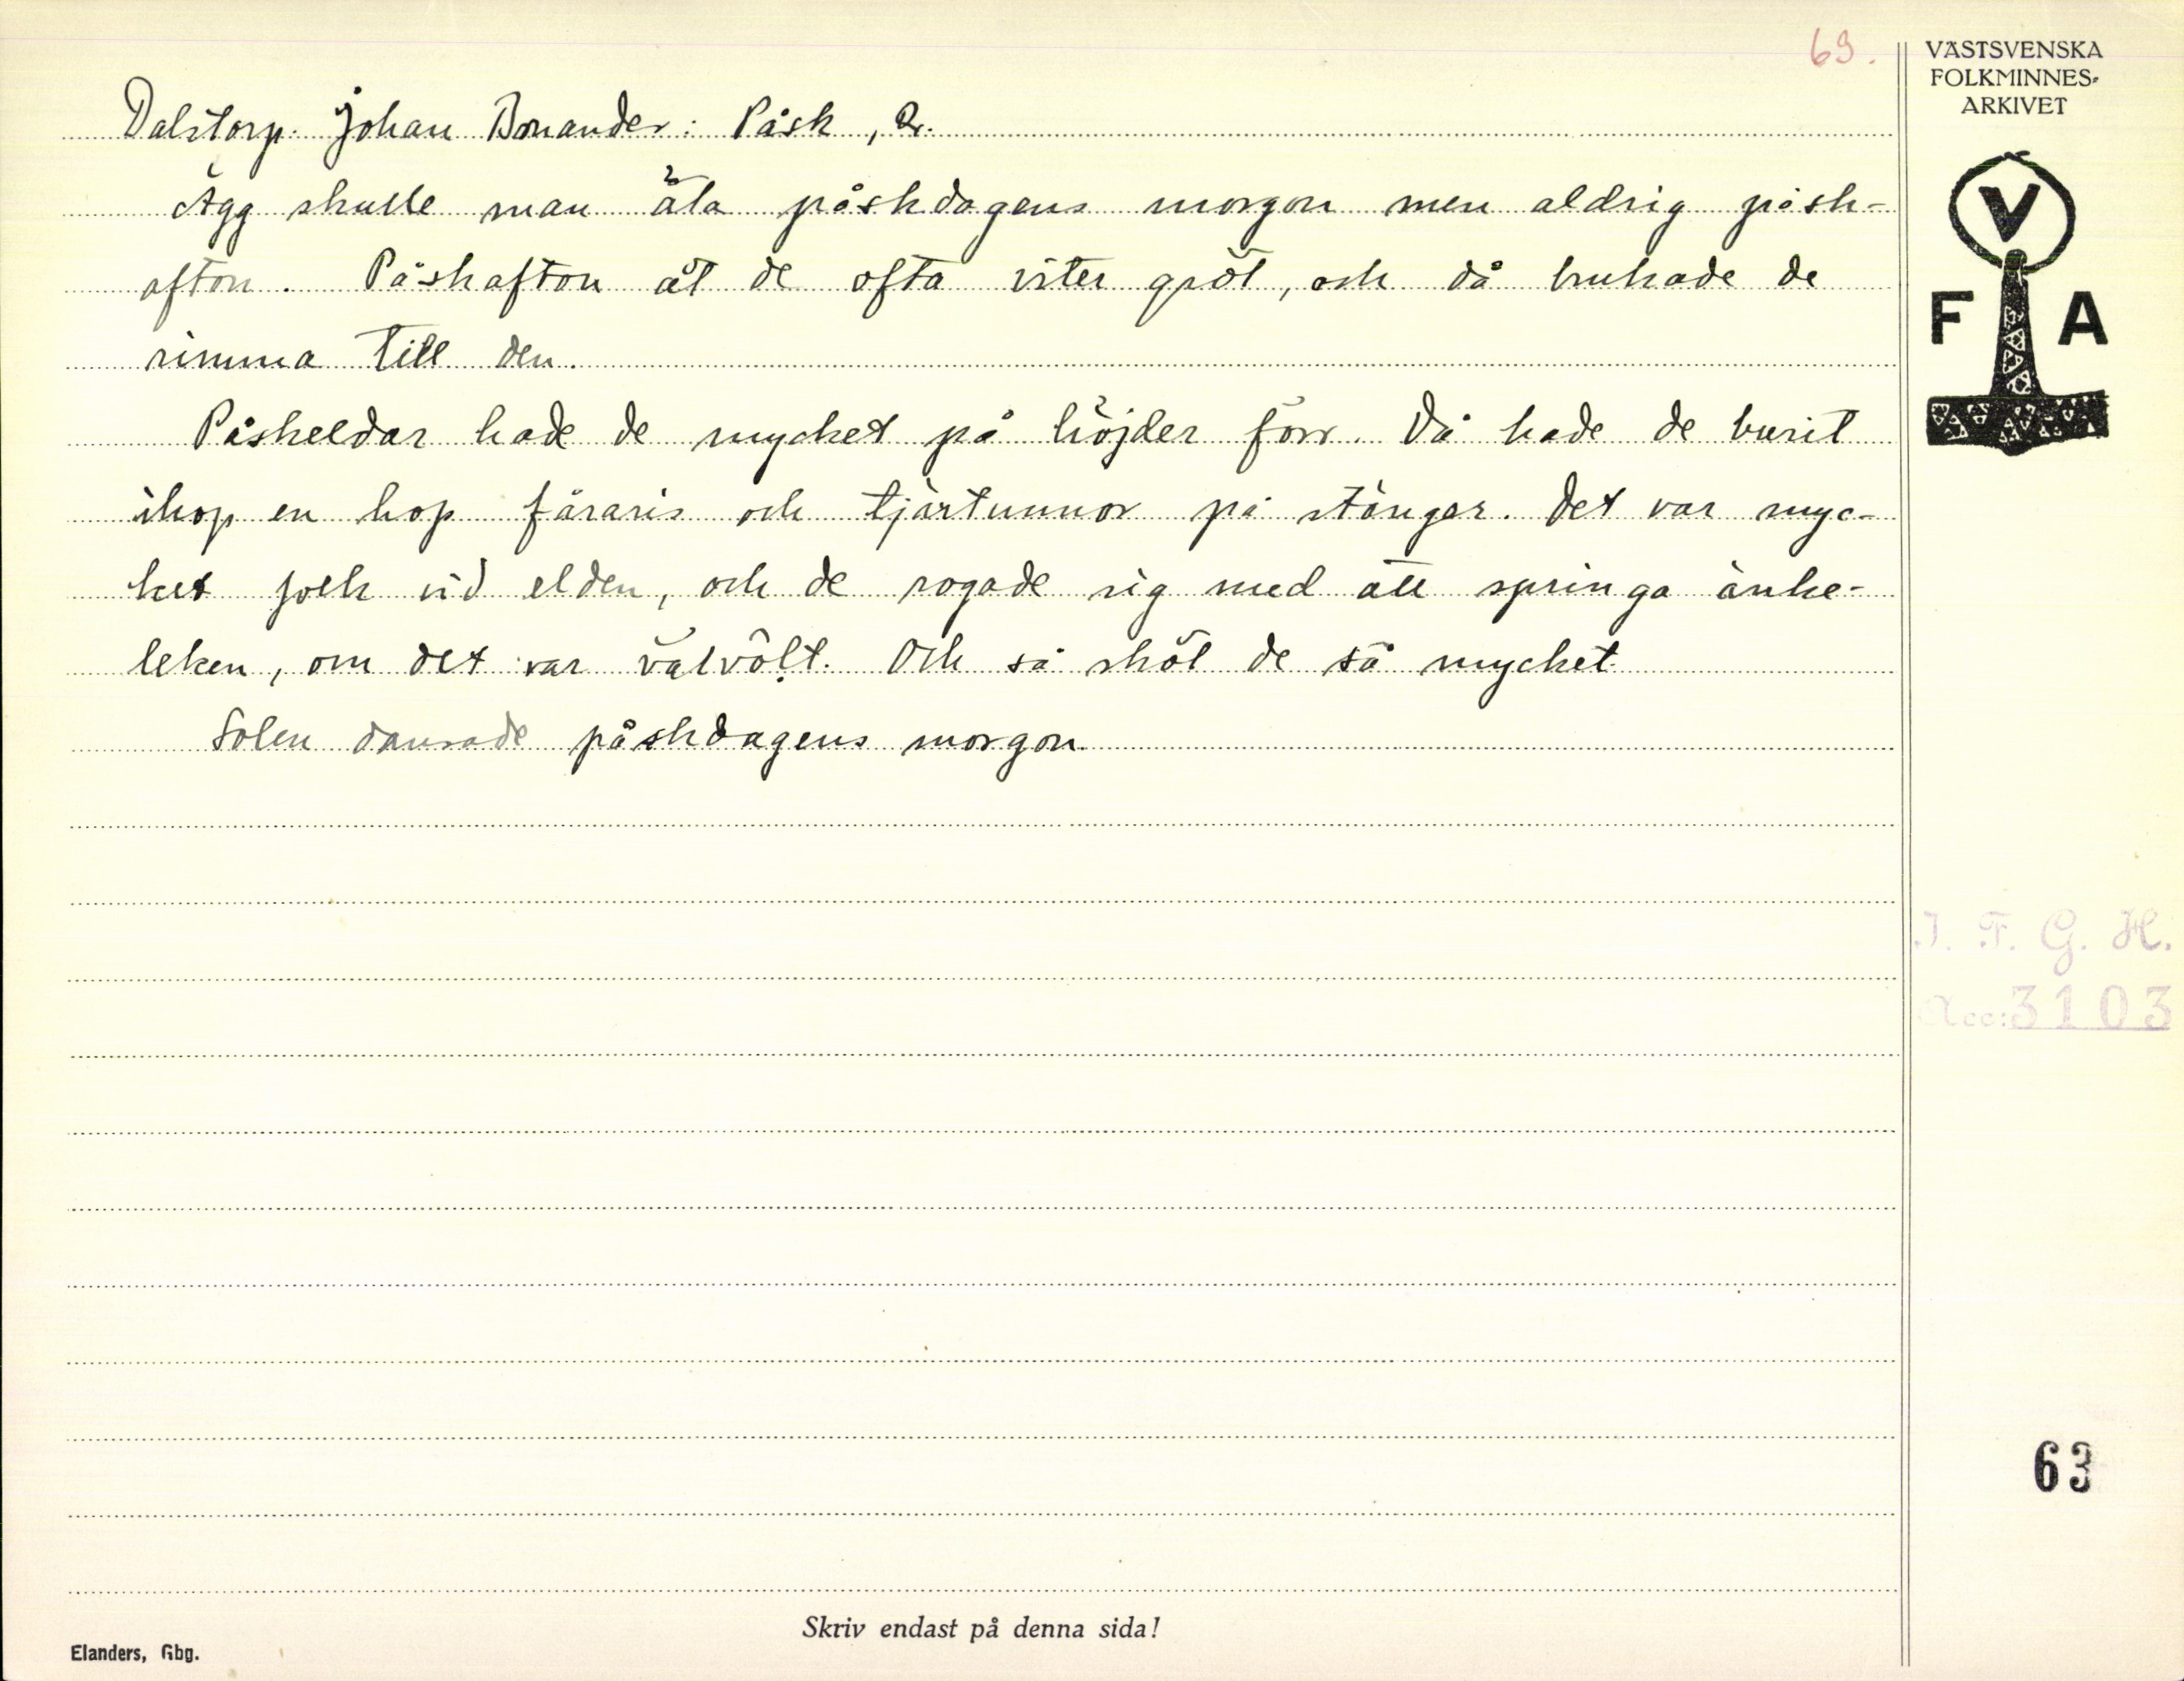 69.
VÄSTSVENSKA
FOLKMINNES-
ARKIVET
V
F A
Dalstorp. Johan Bonander: Påsk, 2.
Ägg skulle man äta påskdagens morgon men aldrig påsk-
afton. Påskafton åt de ofta viter gröt, och då brukade de
rimma till den.
Påskeldar hade de mycket på höjder förr. Då hade de burit
ihop en hop fararis och tjärtunnor på stänger. Det var myc-
ket folk vid elden, och de rogade sig med att springa änke-
leken, om det var valvôlt. Och så sköt de så mycket.
Solen dansade påskdagens morgon.
I. F. G. H.
Acc: 3103
63
Skriv endast på denna sida!
Elanders, Gbg.